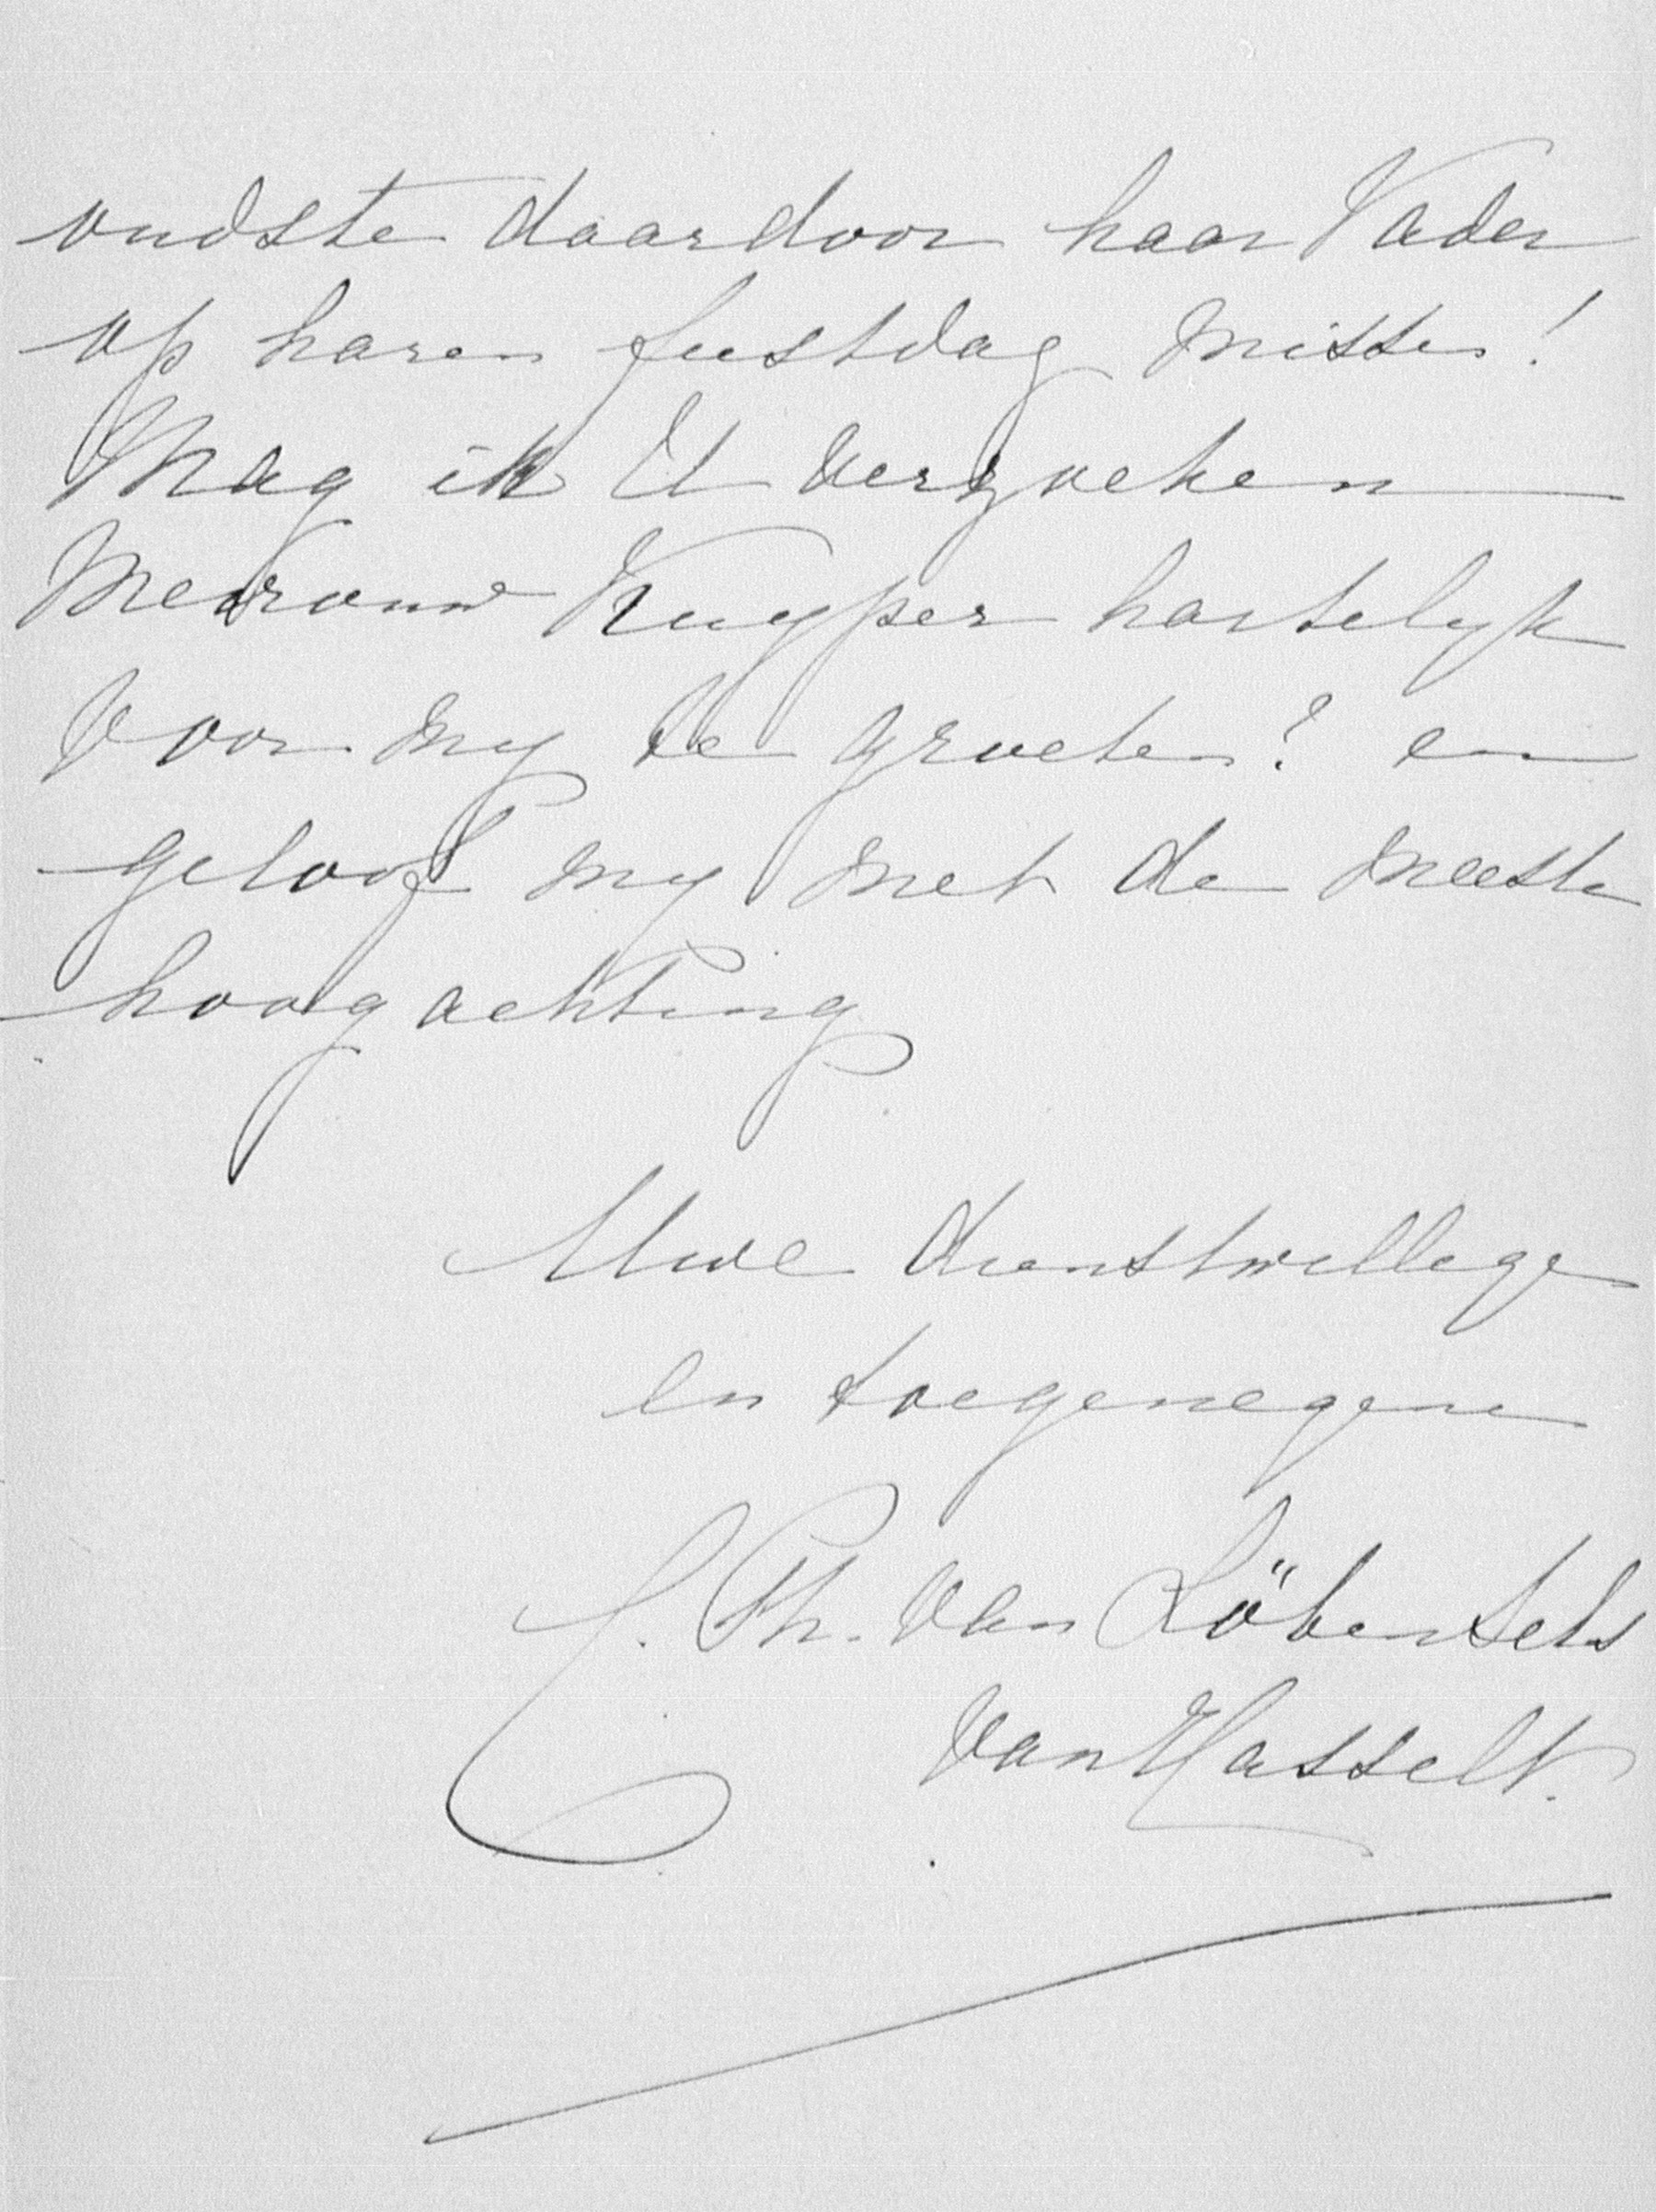 oudste daardoor haar Vader
op haren feestdag missen!
Mag ik U verzoeken
Mevrouw Kuyper hartelyk
voor my te groeten? en
geloof my met de meeste
hoogachting
Uwe dienstwillege
en toegenegene
C. Th. van Löben Sels
van Hasselt.